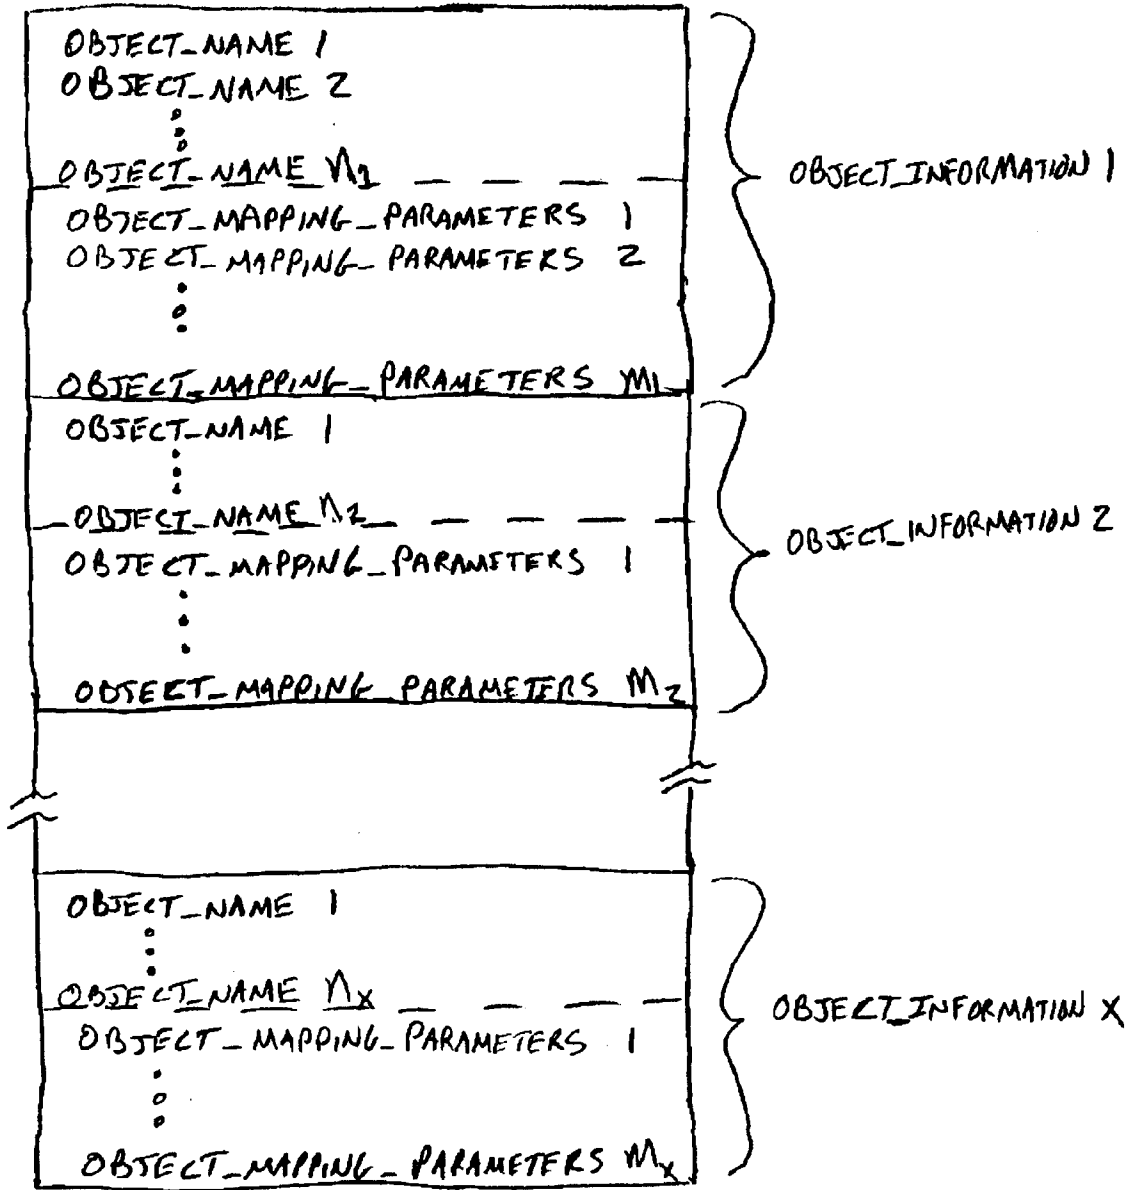 OBJECT_NAME 1
OBJECT_NAME 2
OBJECT_NAME n1
OBJECT_MAPPING_PARAMETERS 1
OBJECT_MAPPING_PARAMETERS 2
OBJECT_MAPPING_PARAMETERS m1
OBJECT_INFORMATION 1
OBJECT_NAME 1
OBJECT_NAME n2
OBJECT_MAPPING_PARAMETERS 1
OBJECT_MAPPING_PARAMETERS m2
OBJECT_INFORMATION 2
OBJECT_NAME 1
OBJECT_NAME nx
OBJECT_MAPPING_PARAMETERS 1
OBJECT_MAPPING_PARAMETERS mx
OBJECT_INFORMATION X